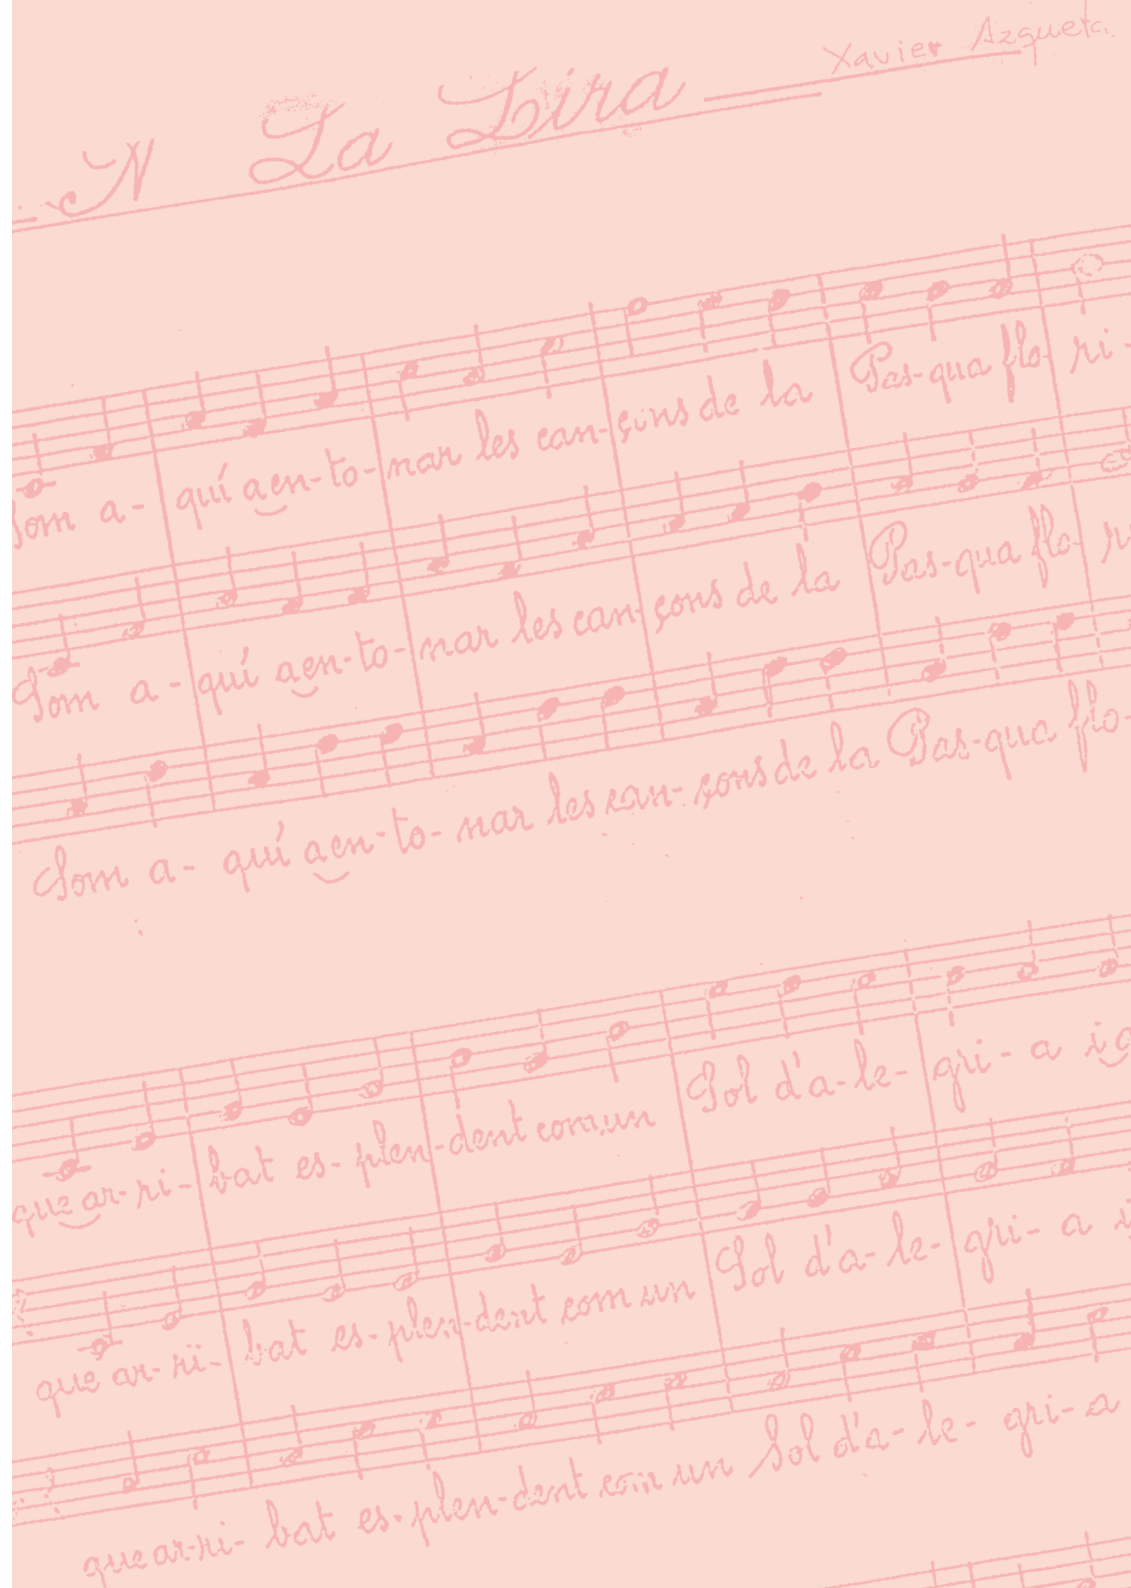 Xavier Azqueta.
N La Lira
Som a- quí aen-to- nar les can-çons de la Pas-qua flo- ri-
Som a- quí aen-to- nar les can-çons de la Pas-qua flo- ri
Som a- quí aen-to- nar les can- çons de la Pas-qua flo-
que ar-ri- bat es- plen- dent com un Sol d'a-le- gri- a i
que ar- ri- bat es- plen- dent com un Sol d'a- le- gri- a i
que ar-ri- bat es- plen- dent com un Sol d'a- le- gri- a